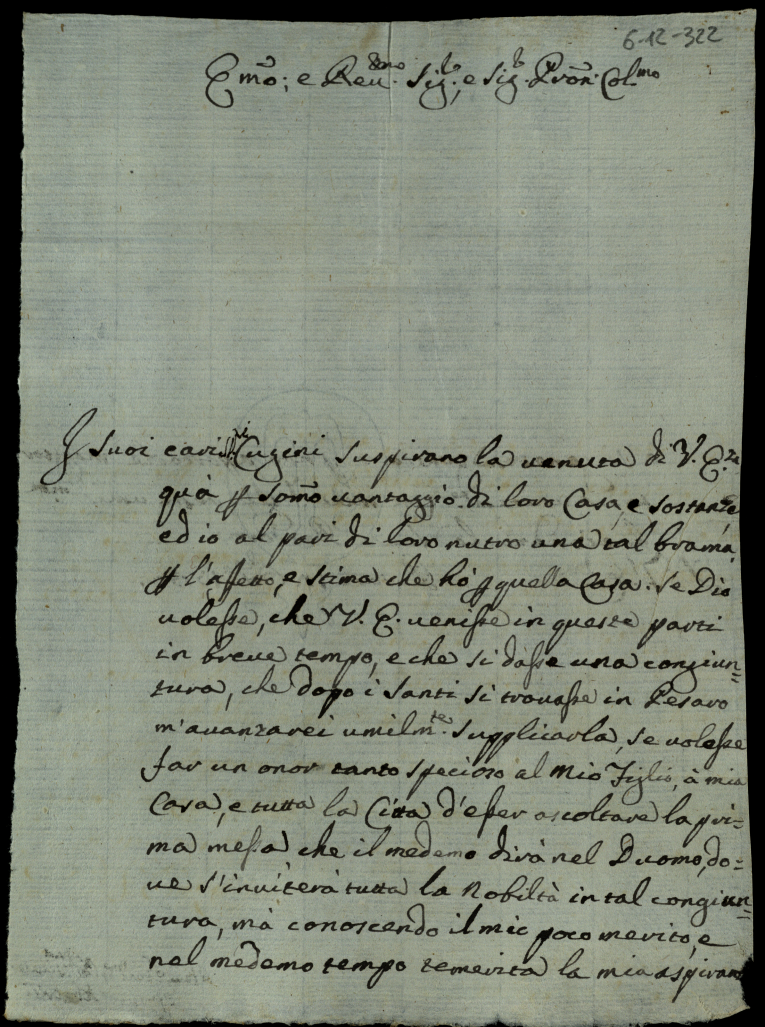 6-12-322
Emo; e Reu.mo Sig.r, e Sig.r Pron: Col.mo
I suoi cariss.mi Cugini suspirano la uenuta di V. E.za
quà p somo uantaggio di loro Casa, e sostanze
ed io al pari di loro nutro una tal brama,
p l'affetto, e stima che hò p quella Casa. Se Dio
uolesse, che V. E. uenisse in queste parti
in breue tempo, e che si dasse una congiun=
tura, che dopo i Santi si trouasse in Pesaro
m'auanzarei umilm.te supplicarla, se uolesse
far un onor tanto specioso al mio Figlio, à mia
Casa, e tutta la Città d'esser ascoltare la pri=
ma messa, che il medemo dirà nel Duomo, do=
ue s'inuiterà tutta la Nobiltà in tal congiun=
tura, mà conoscendo il mio poco merito, e
nel medemo tempo temerita la mia